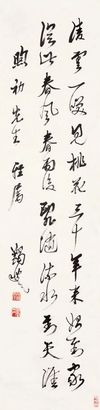 凌雲一笑見桃花三十年來始到家
從此春風春雨後亂隨流水到天涯
先生雅屬